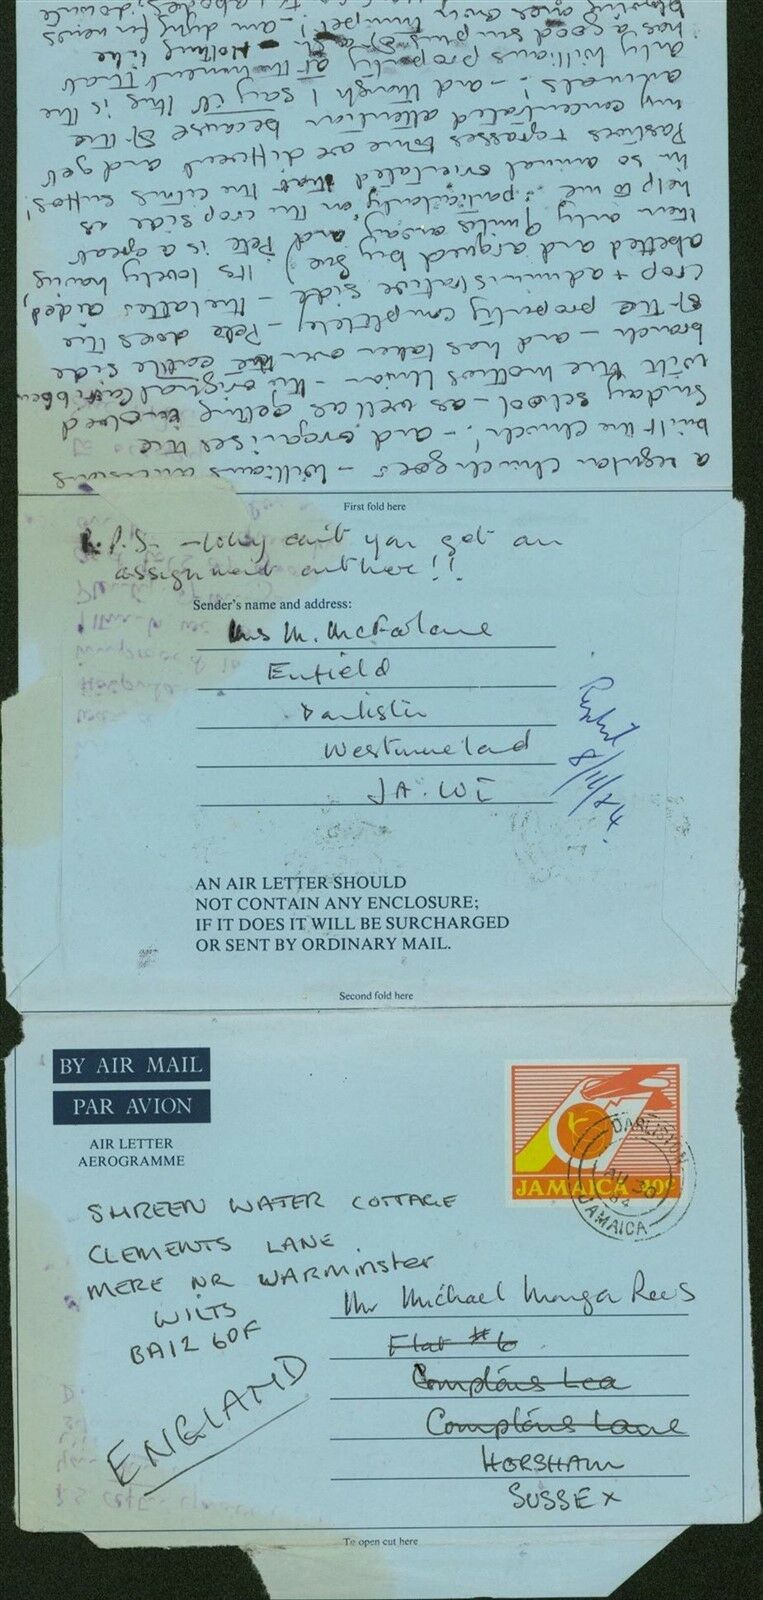 a regular church goer – Williams ancestors
built the church! – and organises the
Sunday school – as well as getting involved
with the Mothers Union – the original Caribbean
branch – and has taken over the cattle side
of the property completely – Pete does the
crop + administrative side – the latter aided,
abetted and argued by Sue) Its lovely having
them only 9 miles away and Pete is a great
help to me : particularly on the crop side as
Im so animal orientated that the citrus suffers!
Pastures + grasses tome are different and get
my concentrated attention because of the
animals! – and though I say it this is the
only Williams property at the moment that
has a good – Nothing like
blowing ones own trumpet! – am dying for news
First fold here
P.S. – Why can't you get an
assignment out here!!
Sender's name and address:
Mrs M. McFarlane
Enfield
Darliston
Westmoreland
JA. WI
8/11/84.
AN AIR LETTER SHOULD
NOT CONTAIN ANY ENCLOSURE;
IF IT DOES IT WILL BE SURCHARGED
OR SENT BY ORDINARY MAIL.
Second fold here
BY AIR MAIL
PAR AVION
AIR LETTER
AEROGRAMME
JAMAICA 20c
DARLISTON
AU 30
84
JAMAICA
SHREEN WATER COTTAGE
CLEMENTS LANE
MERE NR WARMINSTER
WILTS
BA12 6DF
ENGLAND
Mr Michael Manga Rees
Flat #6
Comptons Lea
Comptons Lane
HORSHAM
SUSSEX
To open cut here